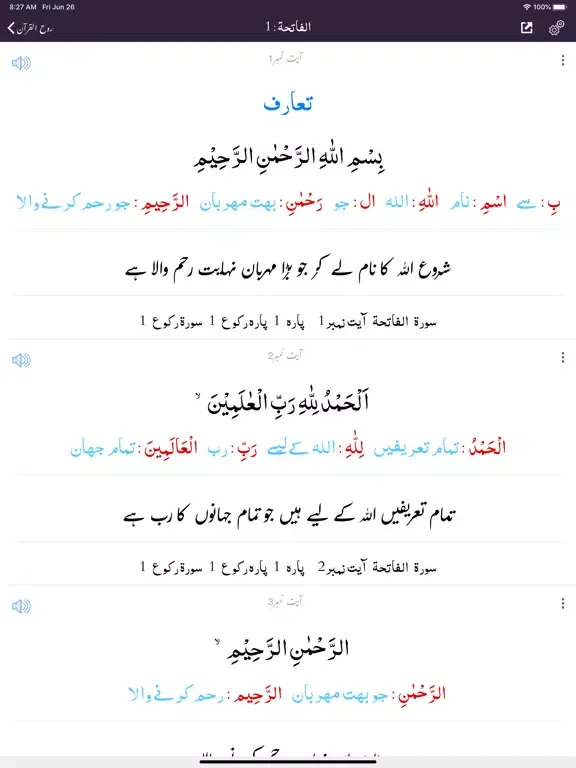 8:27 AM Fri Jun 26 100%
روح القرآن
الفاتحة : 1
آیت نمبر1
تعارف
بِسْمِ اللّٰهِ الرَّحْمٰنِ الرَّحِیْمِ
بِ: سے اسْمِ: نام اللّٰهِ: الله ال: جو رَحْمٰنِ: بهت مهربان الرَّحِیمِ: جو رحم کرنے والا
شروع اللہ کا نام لے کر جو بڑا مہربان نہایت رحم والا ہے
سورة الفاتحة آیت نمبر1 پاره 1 پاره رکوع 1 سورة رکوع 1
آیت نمبر2
اَلْحَمْدُ لِلّٰهِ رَبِّ الْعٰلَمِیْنَ ۙ
الْحَمْدُ: تمام تعریفیں لِلّٰهِ: الله کے لیے رَبِّ: رب الْعَالَمِینَ: تمام جهان
تمام تعریفیں اللہ کے لیے ہیں جو تمام جہانوں کا رب ہے
سورة الفاتحة آیت نمبر2 پاره 1 پاره رکوع 1 سورة رکوع 1
آیت نمبر3
الرَّحْمٰنِ الرَّحِیْمِ ۙ
الرَّحْمٰنِ: جو بهت مهربان الرَّحِیمِ: رحم کرنے والا